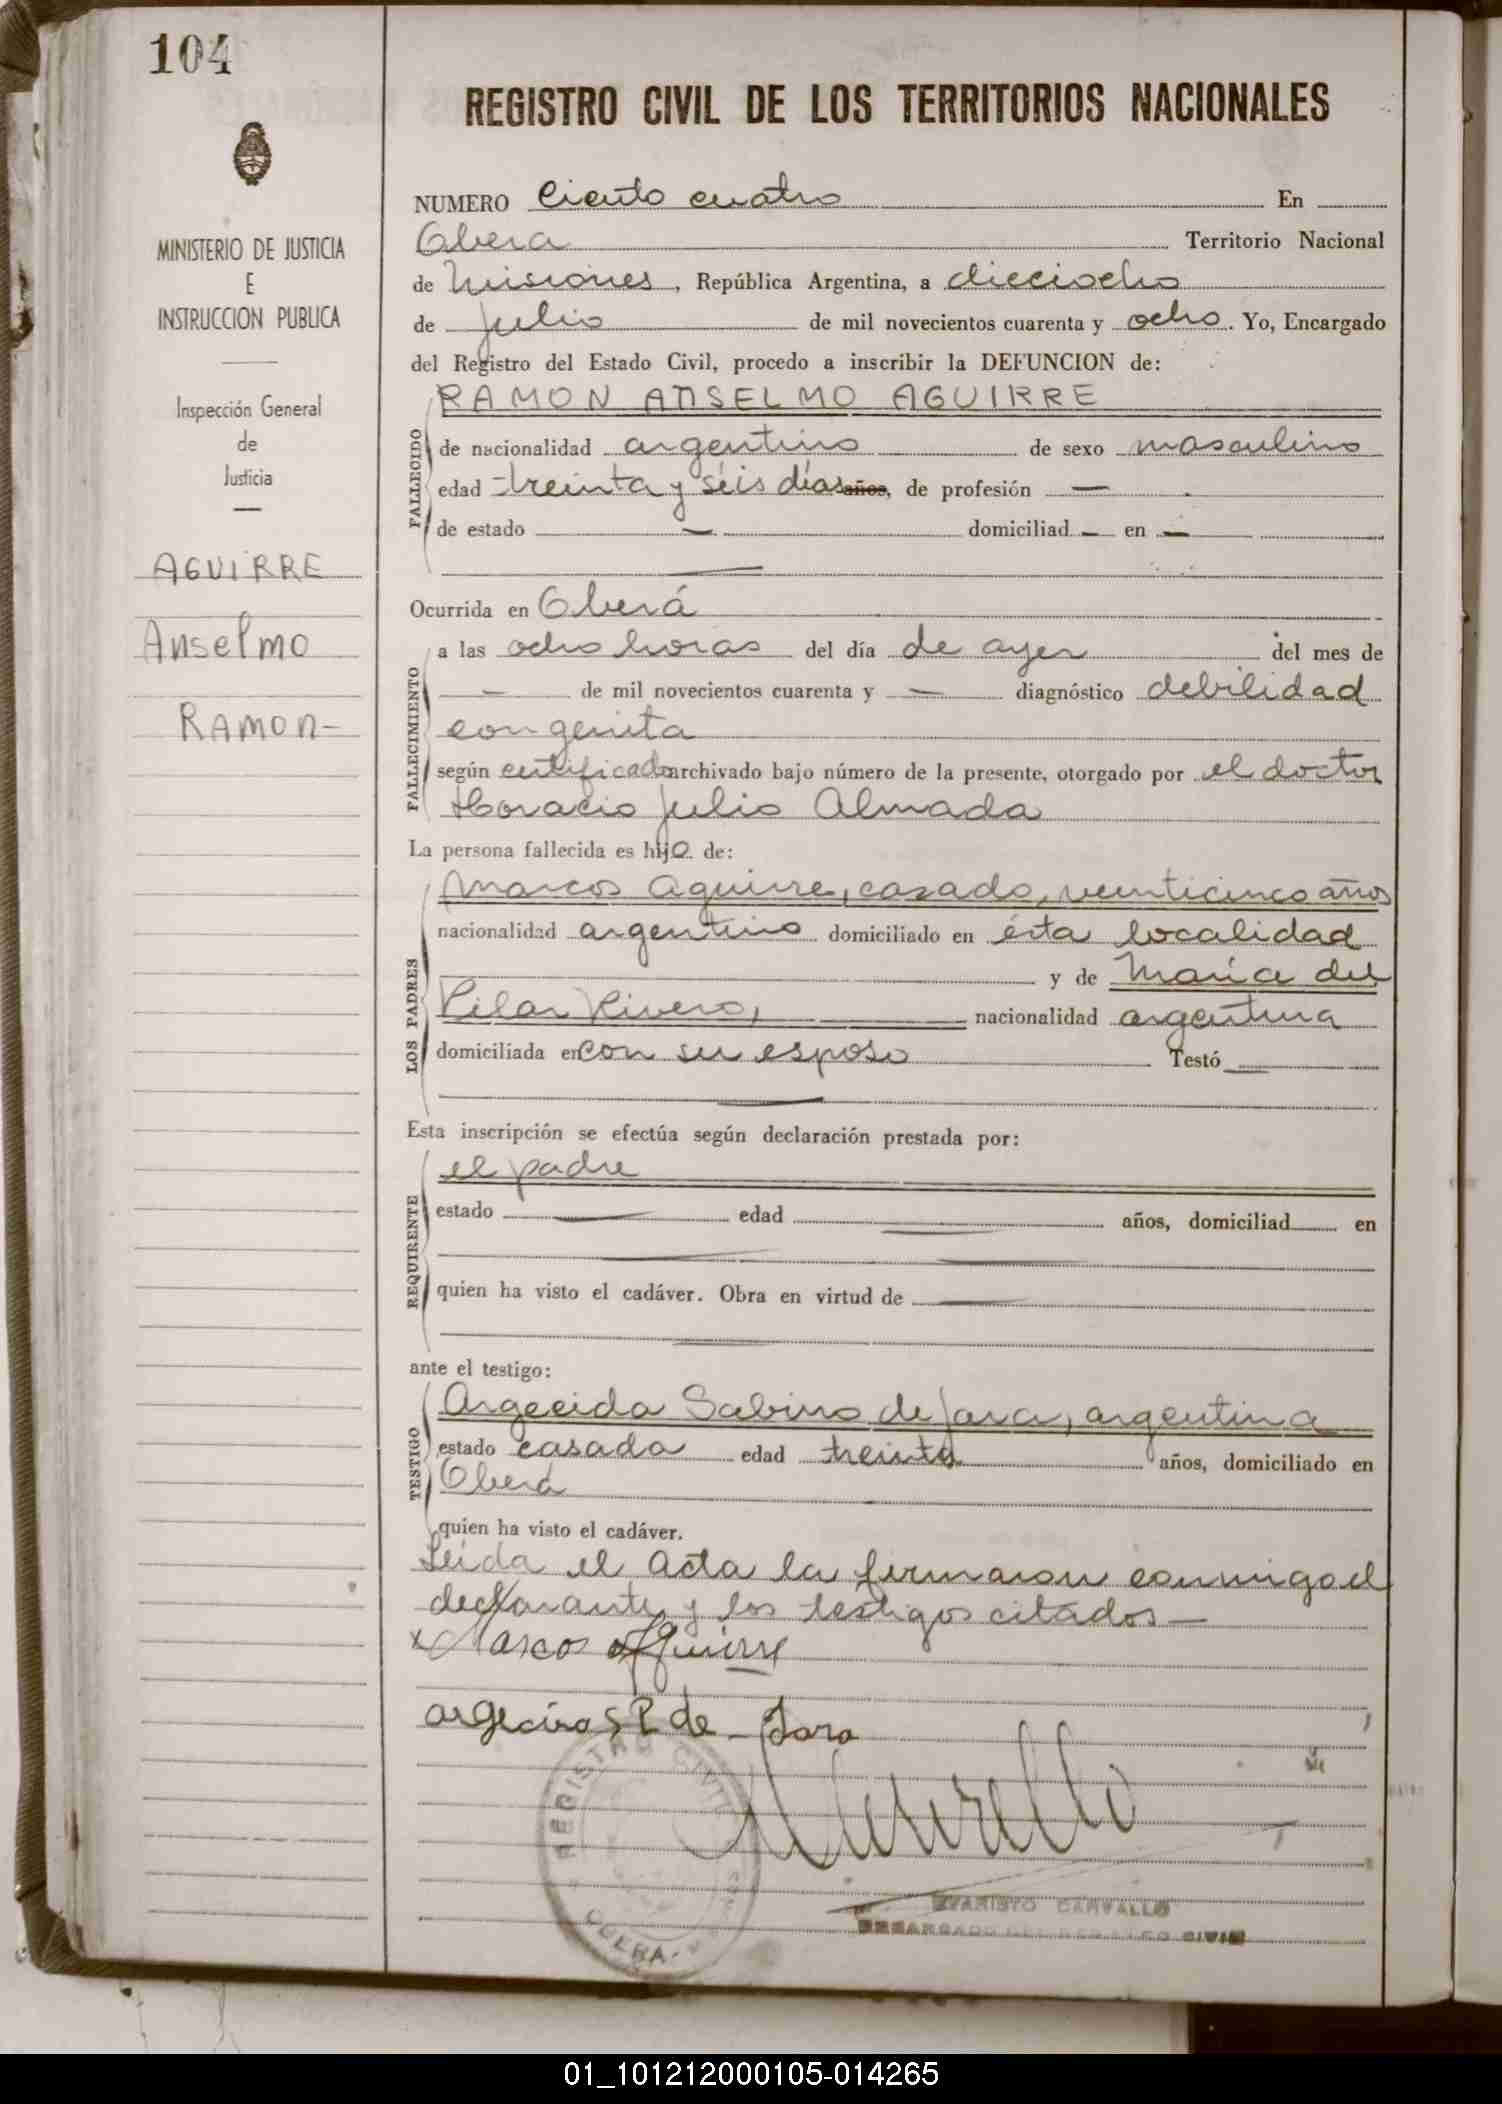 104
REGISTRO CIVIL DE LOS TERRITORIOS NACIONALES
MINISTERIO DE JUSTICIA
E
INSTRUCCION PUBLICA
Inspección General
de
Justicia
AGUIRRE
Anselmo
RAMON-
NUMERO Ciento cuatro En
Obera Territorio Nacional
de Misiones, República Argentina, a dieciocho
de julio de mil novecientos cuarenta y ocho. Yo, Encargado
del Registro del Estado Civil, procedo a inscribir la DEFUNCION de:
RAMON ANSELMO AGUIRRE
FALLECIDO
de nacionalidad argentino de sexo masculino
edad treinta y séis días años, de profesión —
de estado — domiciliad — en —
Ocurrida en Oberá
FALLECIMIENTO
a las ocho horas del día de ayer del mes de
— de mil novecientos cuarenta y — diagnóstico debilidad
congenita
según certificado archivado bajo número de la presente, otorgado por el doctor
Horacio Julio Almada
La persona fallecida es hijo de:
LOS PADRES
Marcos Aguirre, casado, veinticinco años
nacionalidad argentino domiciliado en ésta localidad
y de María del
Pilar Rivero, nacionalidad argentina
domiciliada en con su esposo Testó —
Esta inscripción se efectúa según declaración prestada por:
REQUIRENTE
el padre
estado — edad — años, domiciliad en
quien ha visto el cadáver. Obra en virtud de —
ante el testigo:
TESTIGO
Sabino de Jara, argentina
estado casada edad treinta años, domiciliado en
Oberá
quien ha visto el cadáver.
Leida el acta la firmaron conmigo el
declarante y los testigos citados—
x Marcos Aguirre
de Jara
REGISTRO CIVIL
OBERA
EVARISTO CARVALLO
ENCARGADO DEL REGISTRO CIVIL
01_101212000105-014265